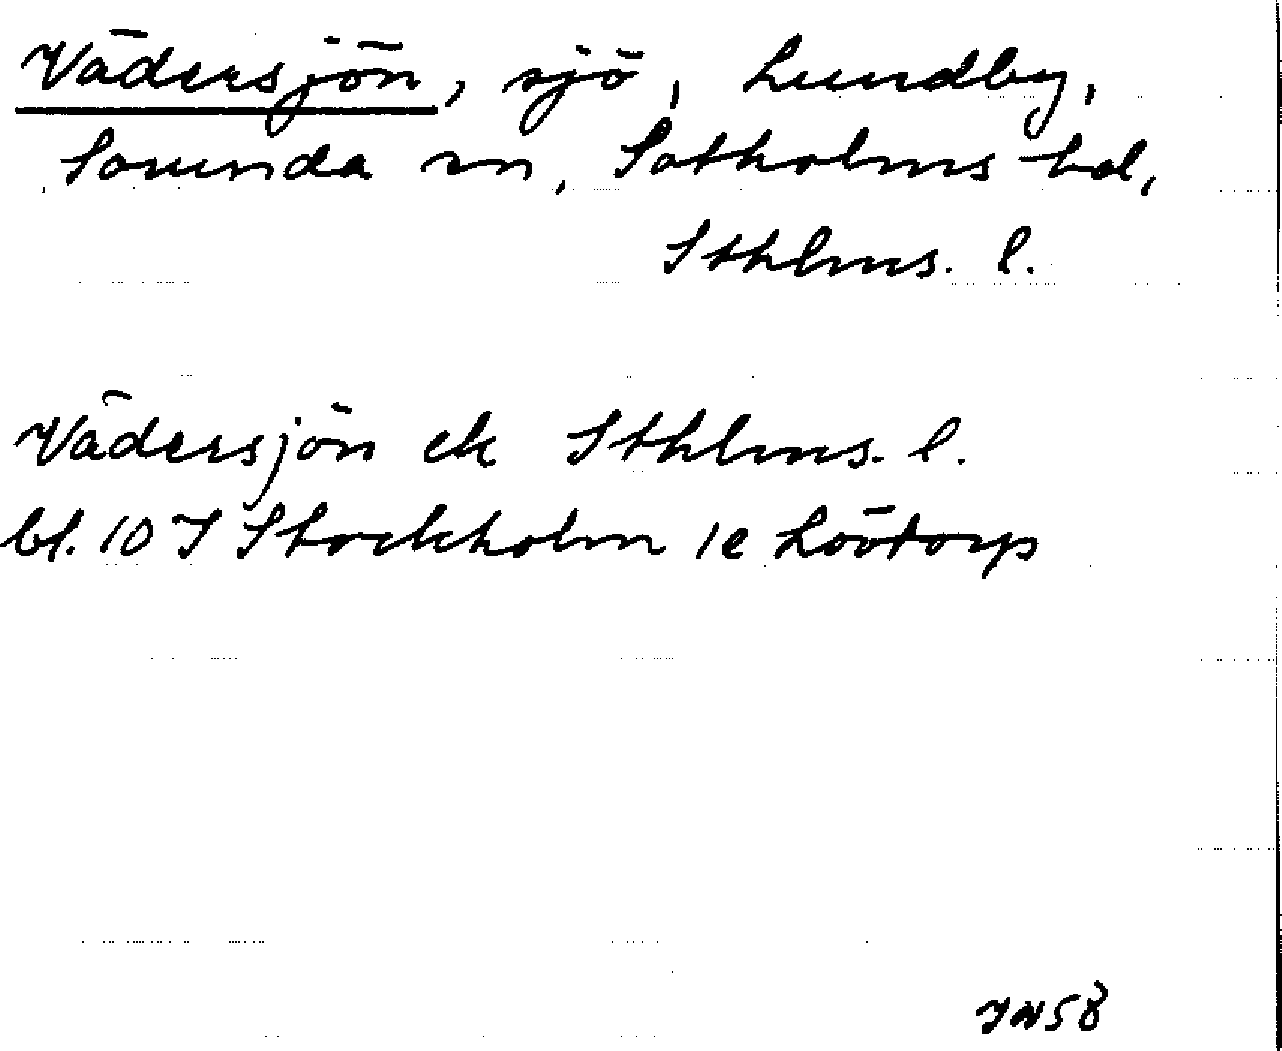 Vädersjön, sjö, Lundby,
Sorunda sn, Sotholms hd,
Sthlms. l.
Vädersjön ek Sthlms. l.
bl. 10 I Stockholm 1e Lövtorp